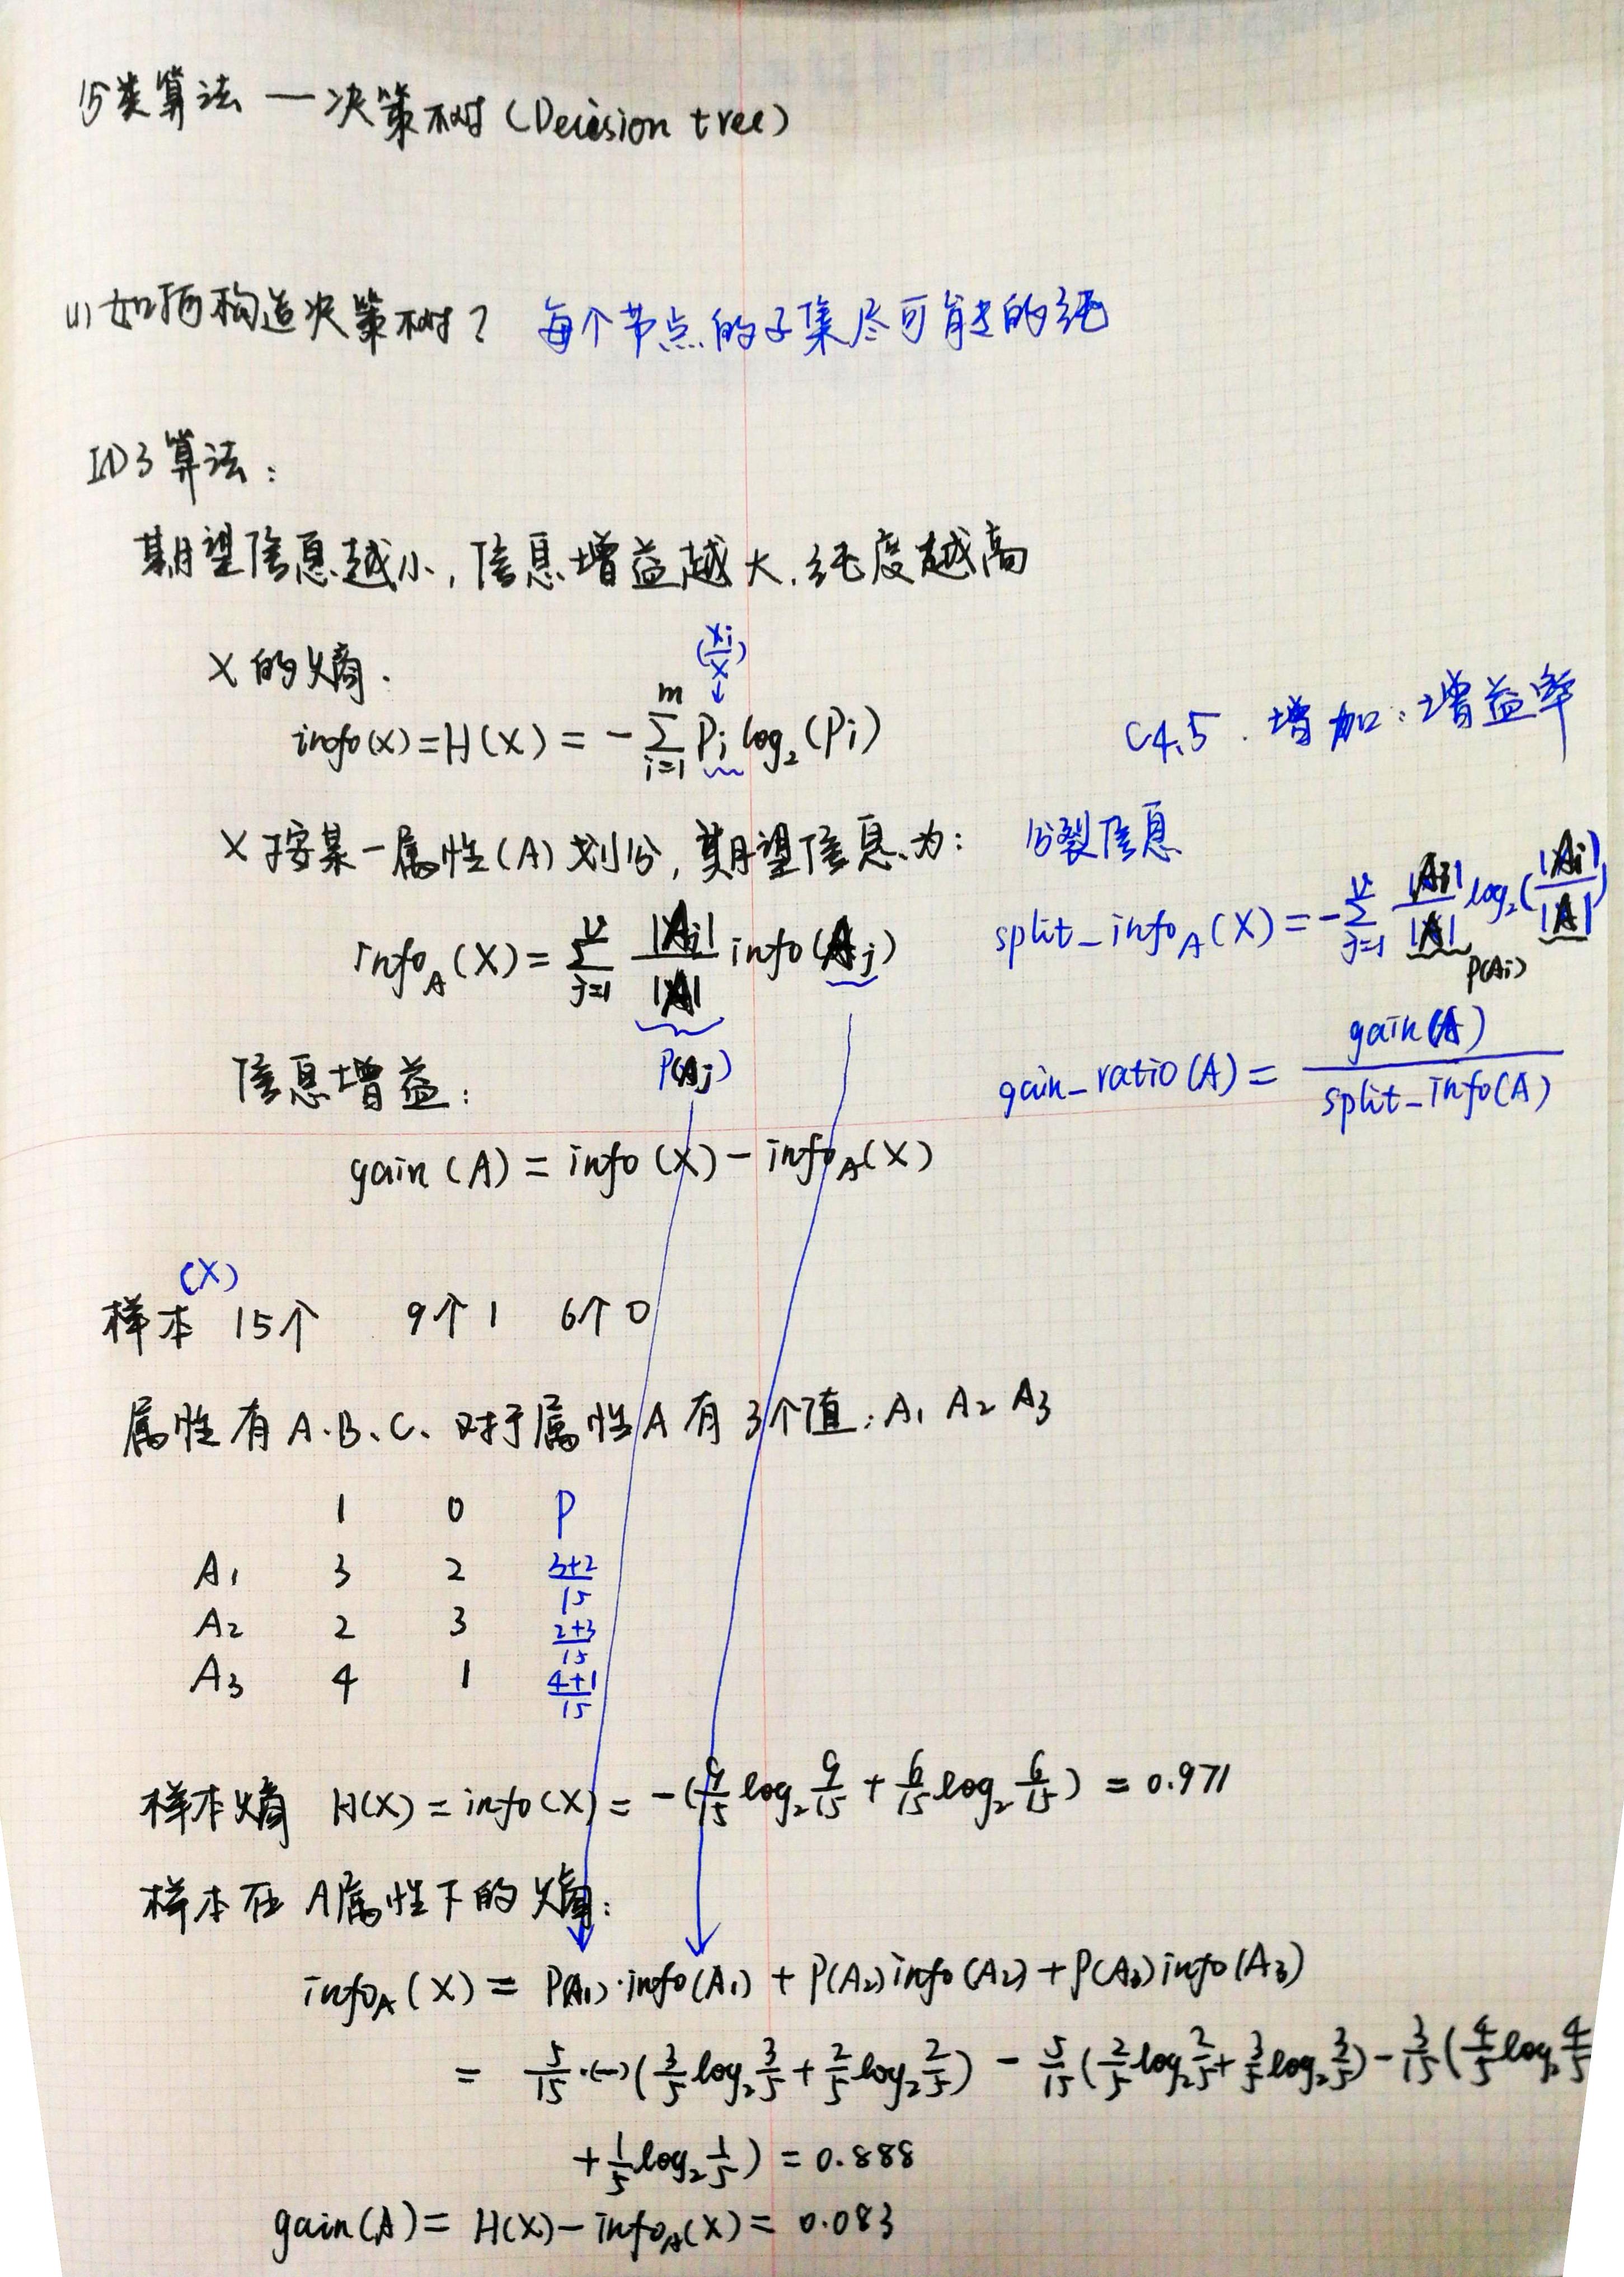 分类算法 — 决策树 (Decision tree)
(1) 如何构造决策树? 每个节点的子集尽可能的纯
ID3 算法:
期望信息越小, 信息增益越大, 纯度越高
X 的熵.
(xi/x)
↓
info(x) = H(X) = -∑_{i=1}^{m} Pi log₂(Pi)
C4.5. 增加: 增益率
X 按某一属性(A)划分, 期望信息为:
info_A(X) = ∑_{j=1}^{v} |Aj|/|A| info(Aj)
P(Aj)
分裂信息
split_info_A(X) = -∑_{j=1}^{v} |Aj|/|A| log₂(|Aj|/|A|)
P(Aj)
信息增益:
gain(A) = info(X) - info_A(X)
gain_ratio(A) = gain(A)/split_info(A)
(X)
样本 15个 9个1 6个0
属性有 A.B、C、对于属性A有3个值: A₁ A₂ A₃
1 0 P
A₁ 3 2 3+2/15
A₂ 2 3 2+3/15
A₃ 4 1 4+1/15
样本熵 H(X) = info(X) = -(9/15 log₂ 9/15 + 6/15 log₂ 6/15) = 0.971
样本在A属性下的熵:
info_A(X) = P(A₁)·info(A₁) + P(A₂)info(A₂) + P(A₃)info(A₃)
= 5/15·(-)(3/5 log₂ 3/5 + 2/5 log₂ 2/5) - 5/15(2/5 log₂ 2/5 + 3/5 log₂ 3/5) - 3/15(4/5 log₂ 4/5
+ 1/5 log₂ 1/5) = 0.888
gain(A) = H(X) - info_A(X) = 0.083